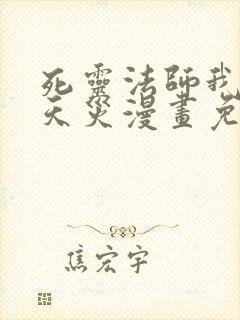 死靈法師我
天災漫畫免
焦宏宇